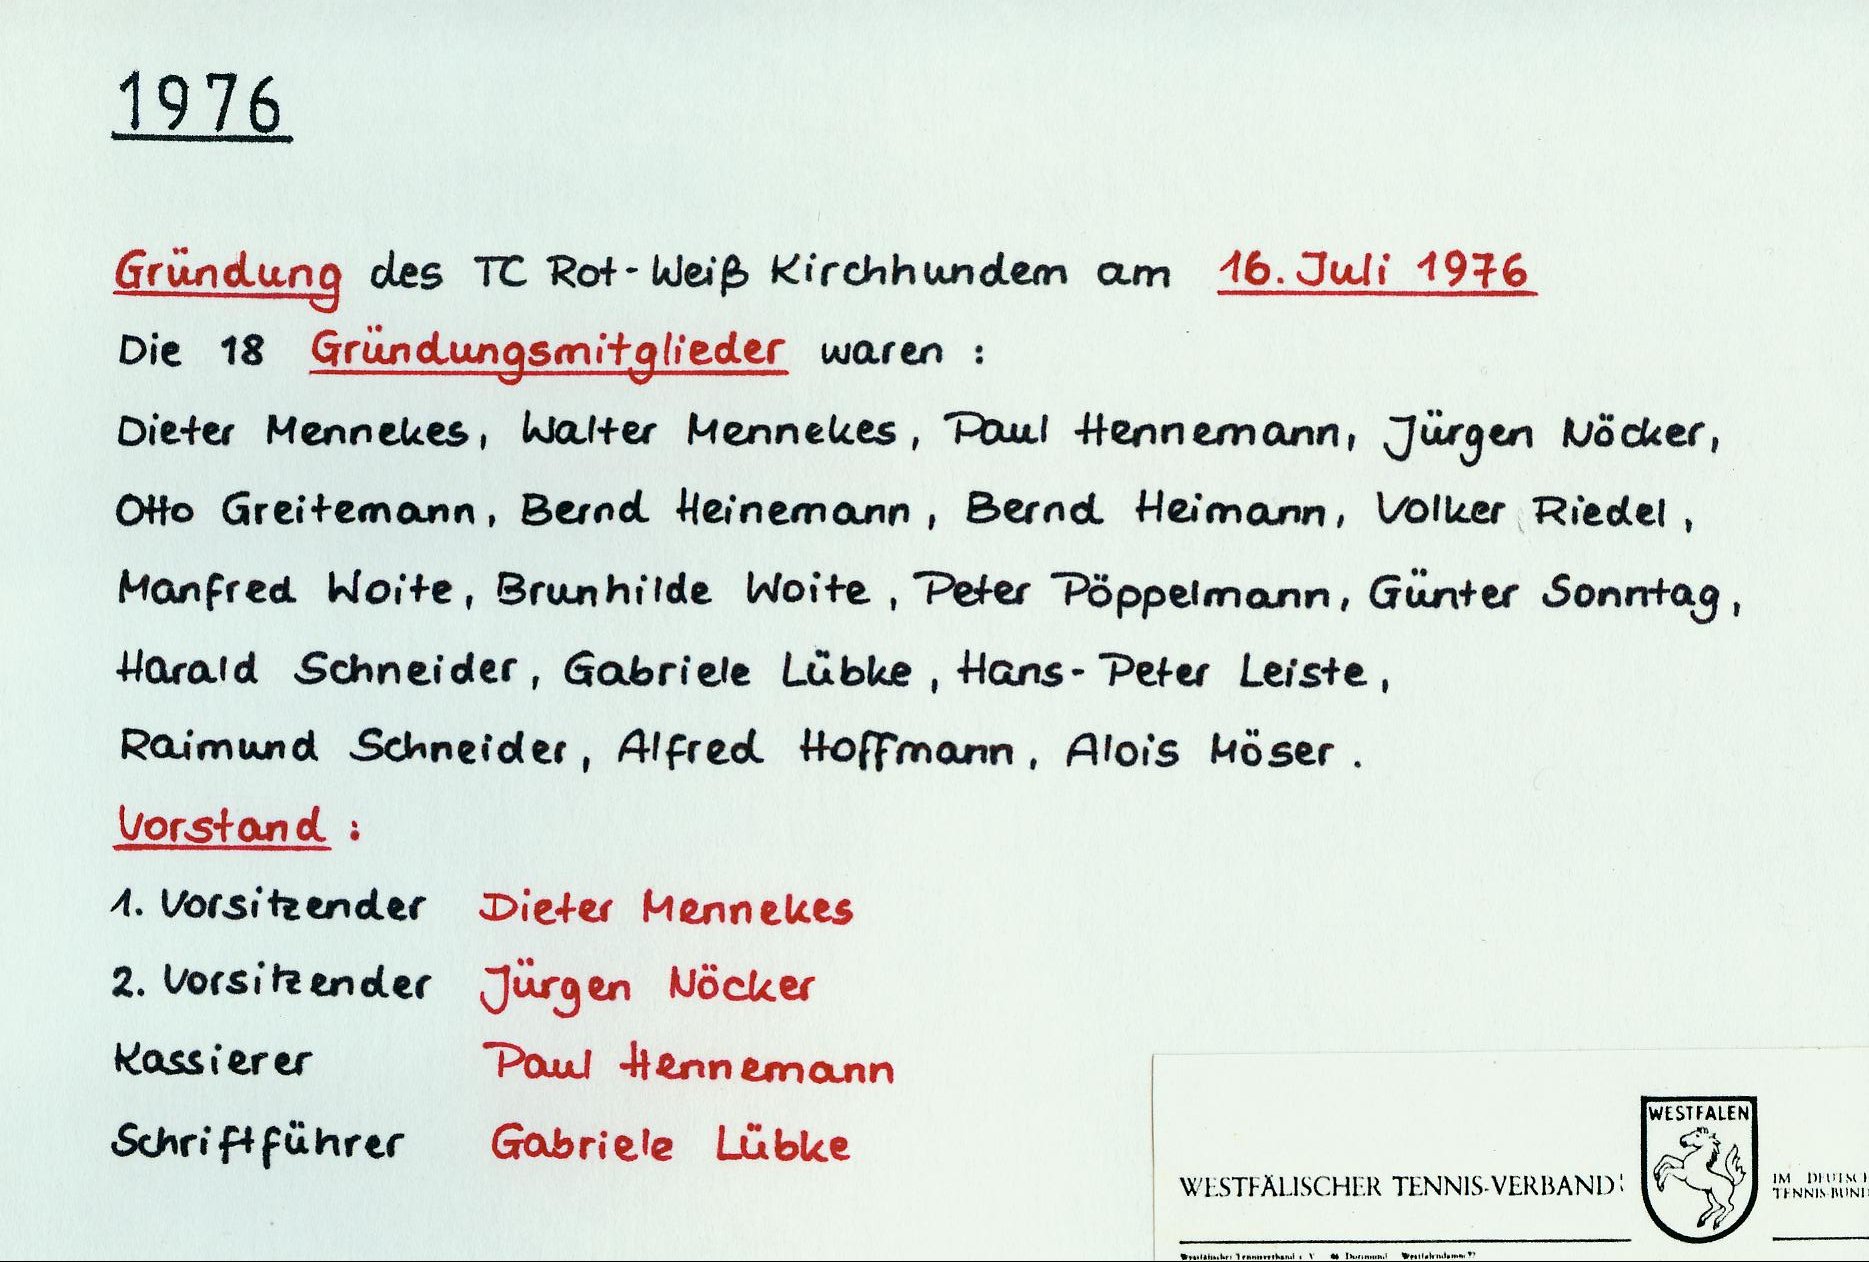 1976
Gründung des TC Rot-Weiß Kirchhundem am 16. Juli 1976
Die 18 Gründungsmitglieder waren :
Dieter Mennekes, Walter Mennekes, Paul Hennemann, Jürgen Nöcker,
Otto Greitemann, Bernd Heinemann, Bernd Heimann, Volker Riedel,
Manfred Woite, Brunhilde Woite, Peter Pöppelmann, Günter Sonntag,
Harald Schneider, Gabriele Lübke, Hans-Peter Leiste,
Raimund Schneider, Alfred Hoffmann, Alois Möser.
Vorstand :
1. Vorsitzender Dieter Mennekes
2. Vorsitzender Jürgen Nöcker
Kassierer Paul Hennemann
Schriftführer Gabriele Lübke
WESTFALEN
WESTFÄLISCHER TENNIS-VERBAND
IM DEUTSCH
TENNIS-BUN